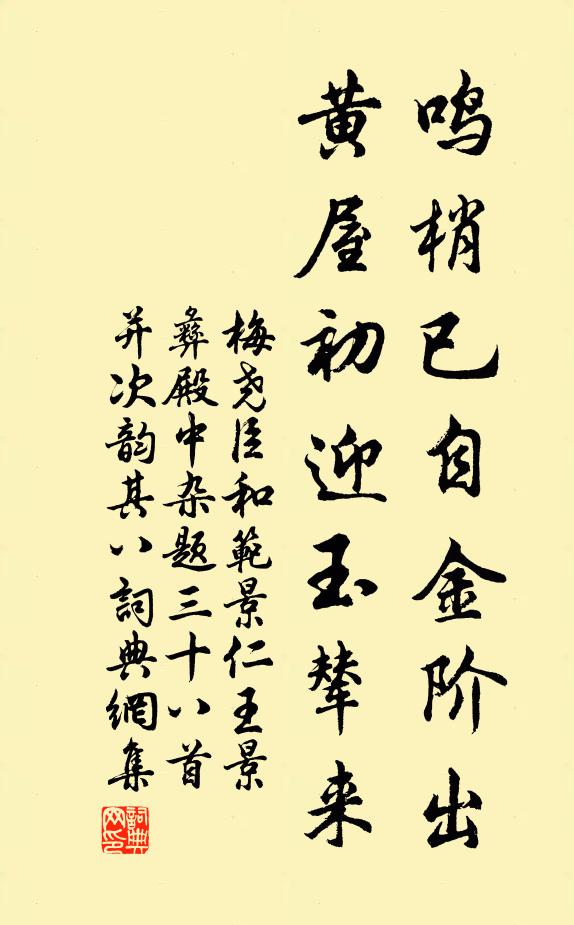 鸣梢已自金阶出
黄屋初迎玉辇来
梅尧臣和範景仁王景
彝殿中杂题三十八首
并次韵其八詞典網集
詞典网印